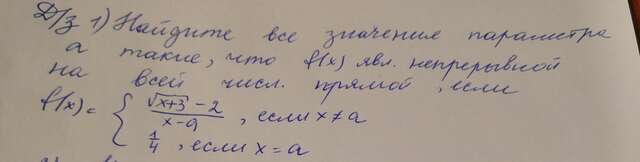 Д/з 1) Найдите все значение параметра
а такие, что f(x) явл. непрерывной
на всей числ. прямой, если
f(x) = { (√(x+3) - 2)/(x-a), если x ≠ a
1/4, если x = a